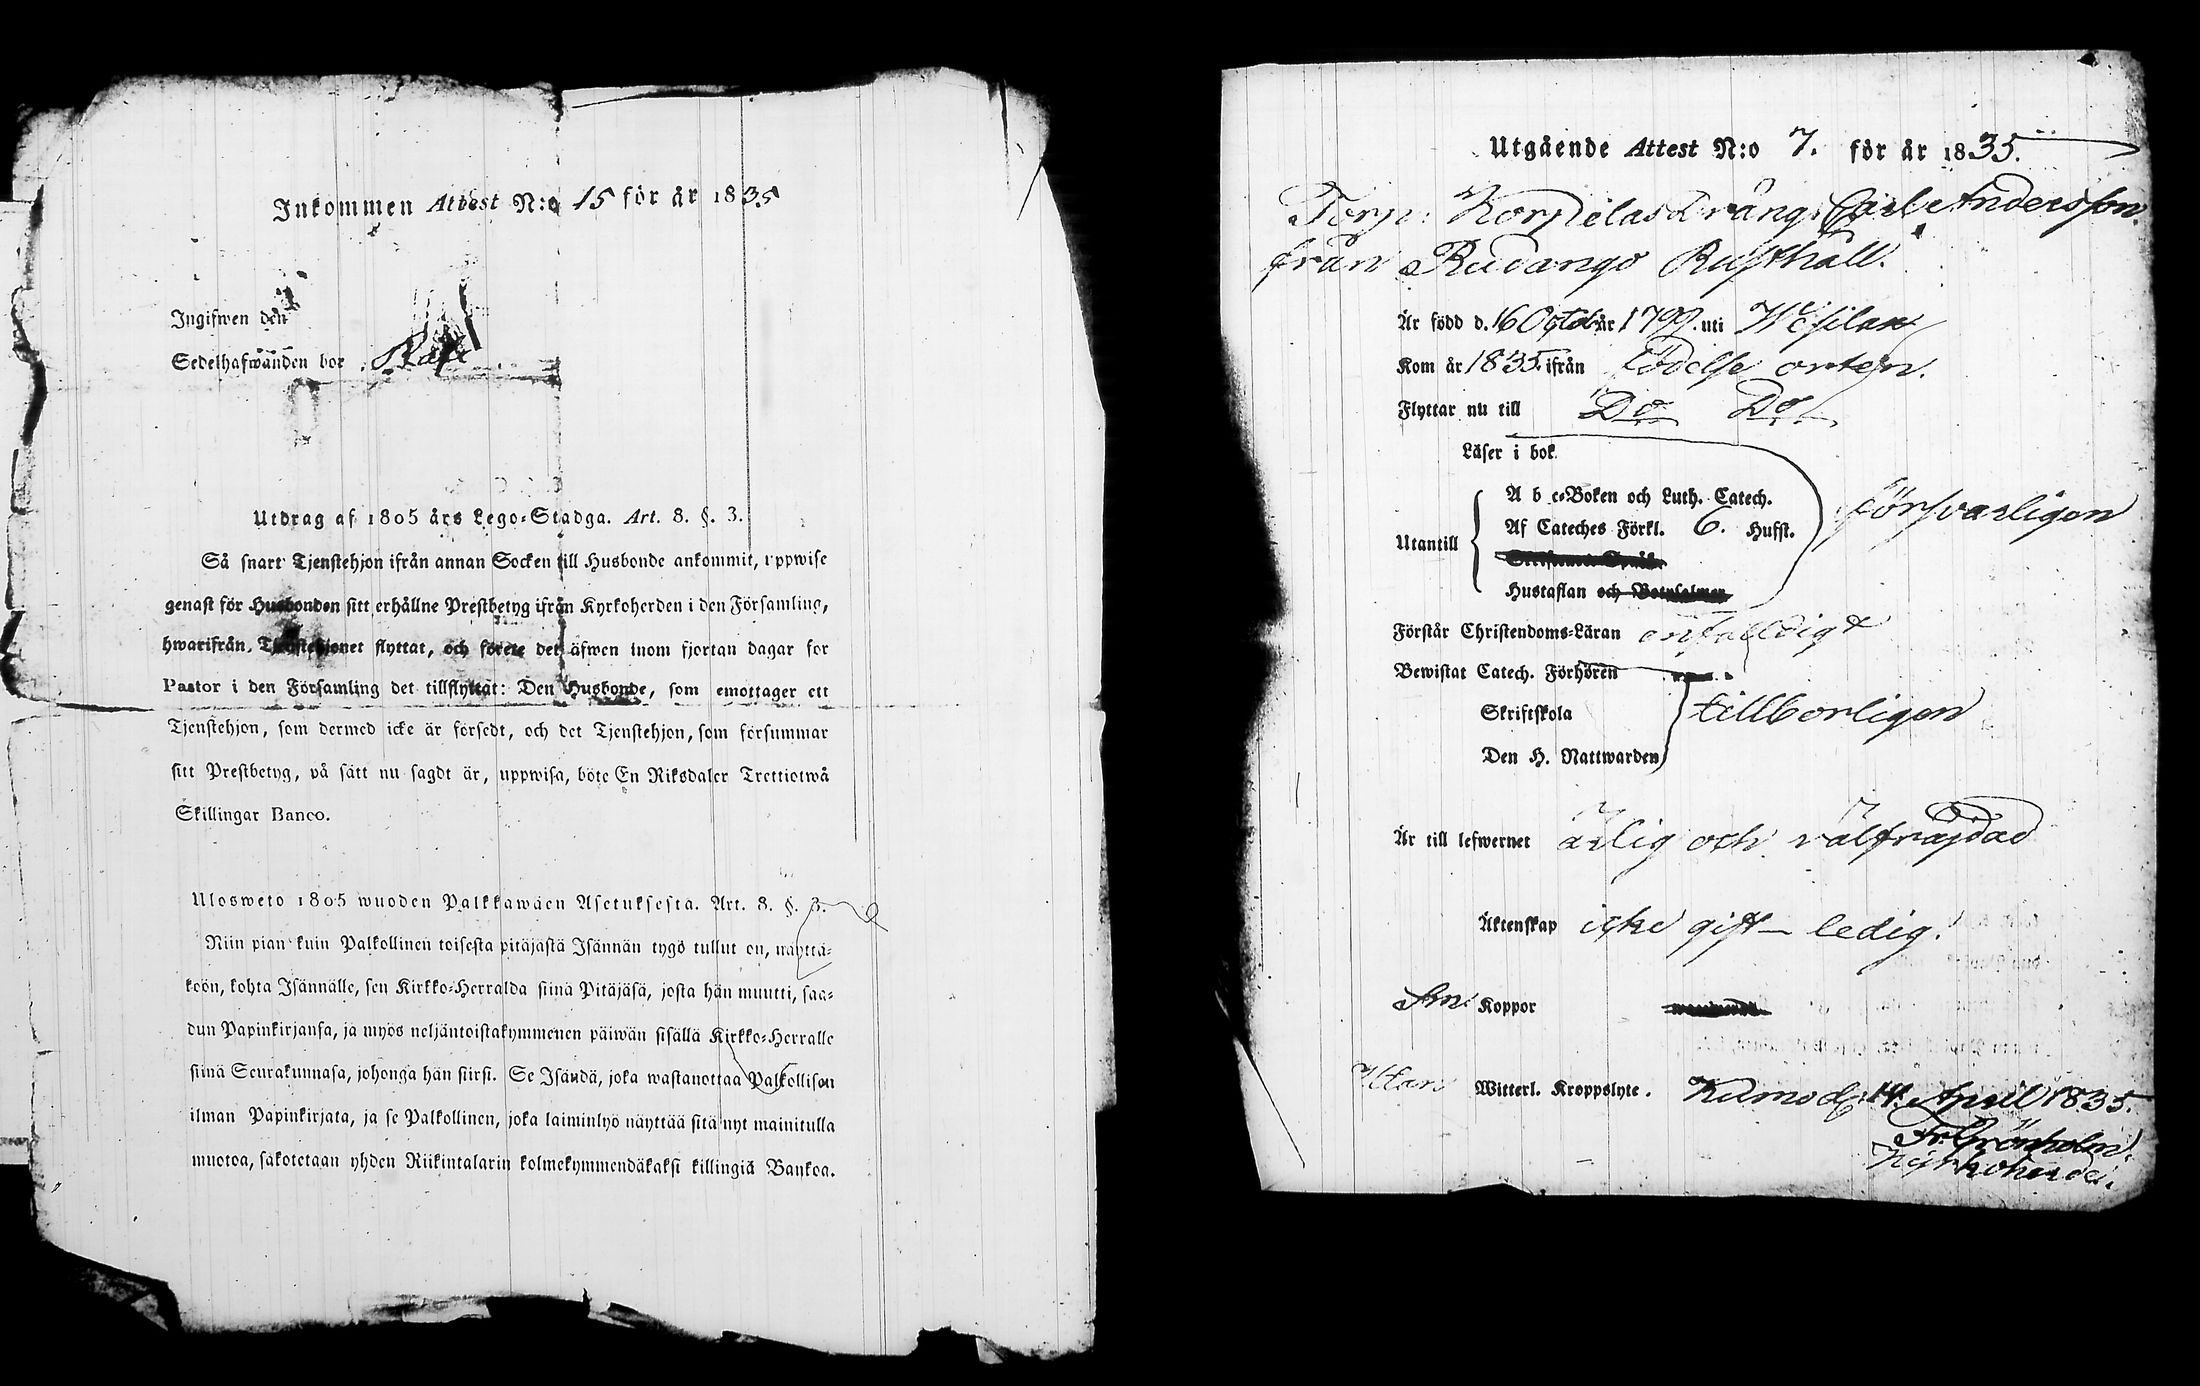 Inkommen Attest N:o 15 för år 1835
Ingifwen den
Sedelhafwanden bor
Utdrag af 1805 års Lego-Stadga. Art. 8. §. 3.
Så snart Tjenstehjon ifrån annan Socken till Husbonde ankommit, uppwise
genast för Husbonden sitt erhållne Prestbetyg ifrån Kyrkoherden i den Församling,
hwarifrån Tjenstehjonet flyttat, och förete det äfwen inom fjortan dagar för
Pastor i den Församling det tillflyttat: Den Husbonde, som emottager ett
Tjenstehjon, som dermed icke är försedt, och det Tjenstehjon, som försummar
sitt Prestbetyg, på sätt nu sagdt är, uppwisa, böte En Riksdaler Trettiotwå
Skillingar Banco.
Ulosweto 1805 wuoden Palkkawäen Asetuksesta. Art. 8. §. 3.
Niin pian kuin Palkollinen toisesta pitäjästä Isännän tygö tullut on, näyttä-
köön, kohta Isännälle, sen Kirkko-Herralda siinä Pitäjäsä, josta hän muutti, saa-
dun Papinkirjansa, ja myös neljäntoistakymmenen päiwän sisällä Kirkko-Herralle
siinä Seurakunnasa, johonga hän siirsi. Se Isändä, joka wastanottaa Palkollisen
ilman Papinkirjata, ja se Palkollinen, joka laiminlyö näyttää sitä nyt mainitulla
muotoa, sakotetaan yhden Riikintalarin kolmekymmendäkaksi killingiä Bankoa.
Utgående Attest N:o 7. för år 1835.
Torp: Korpelas dräng Carl Andersson
från Rudango Rusthåll.
Är född d. 16 Octob. år 1799. uti
Kom år 1835. ifrån födelse orten.
Flyttar nu till Do Do
Läser i bok
Utantill
A b c-Boken och Luth. Catech.
Af Cateches Förkl. 6. Hufst.
Hustaflan och
försvarligen
Förstår Christendoms-Läran enfaldigt
Bewistat Catech. Förhören
Skriftskola
Den H. Nattwarden
tillborligen
Är till lefwernet ärlig och välfräjdad
Äktenskap icke gift – ledig.
Koppor
Utan Witterl. Kroppslyte. Kumo d. 14. April 1835.
Fr. Grönholm.
Kyrkoherde.